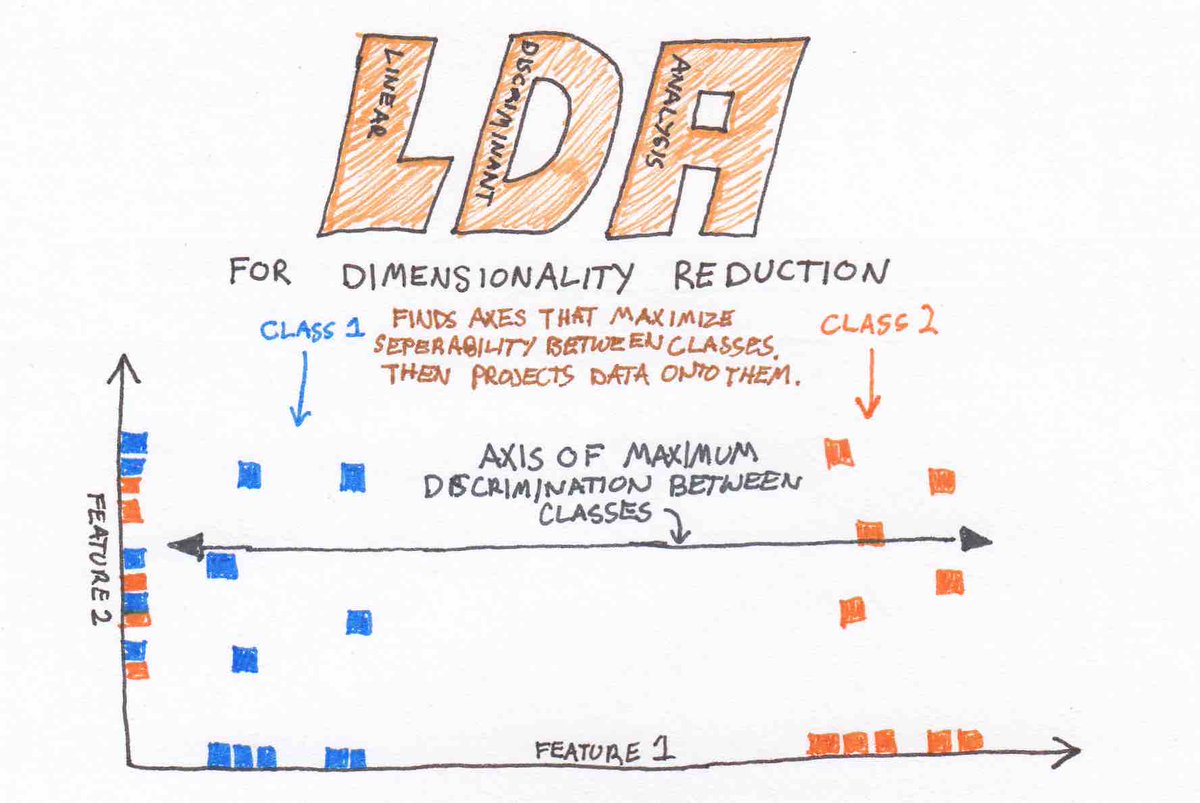 LDA
LINEAR
DISCRIMINANT
ANALYSIS
FOR DIMENSIONALITY REDUCTION
CLASS 1
FINDS AXES THAT MAXIMIZE
SEPERABILITY BETWEEN CLASSES.
THEN PROJECTS DATA ONTO THEM.
CLASS 2
AXIS OF MAXIMUM
DISCRIMINATION BETWEEN
CLASSES
FEATURE 2
FEATURE 1